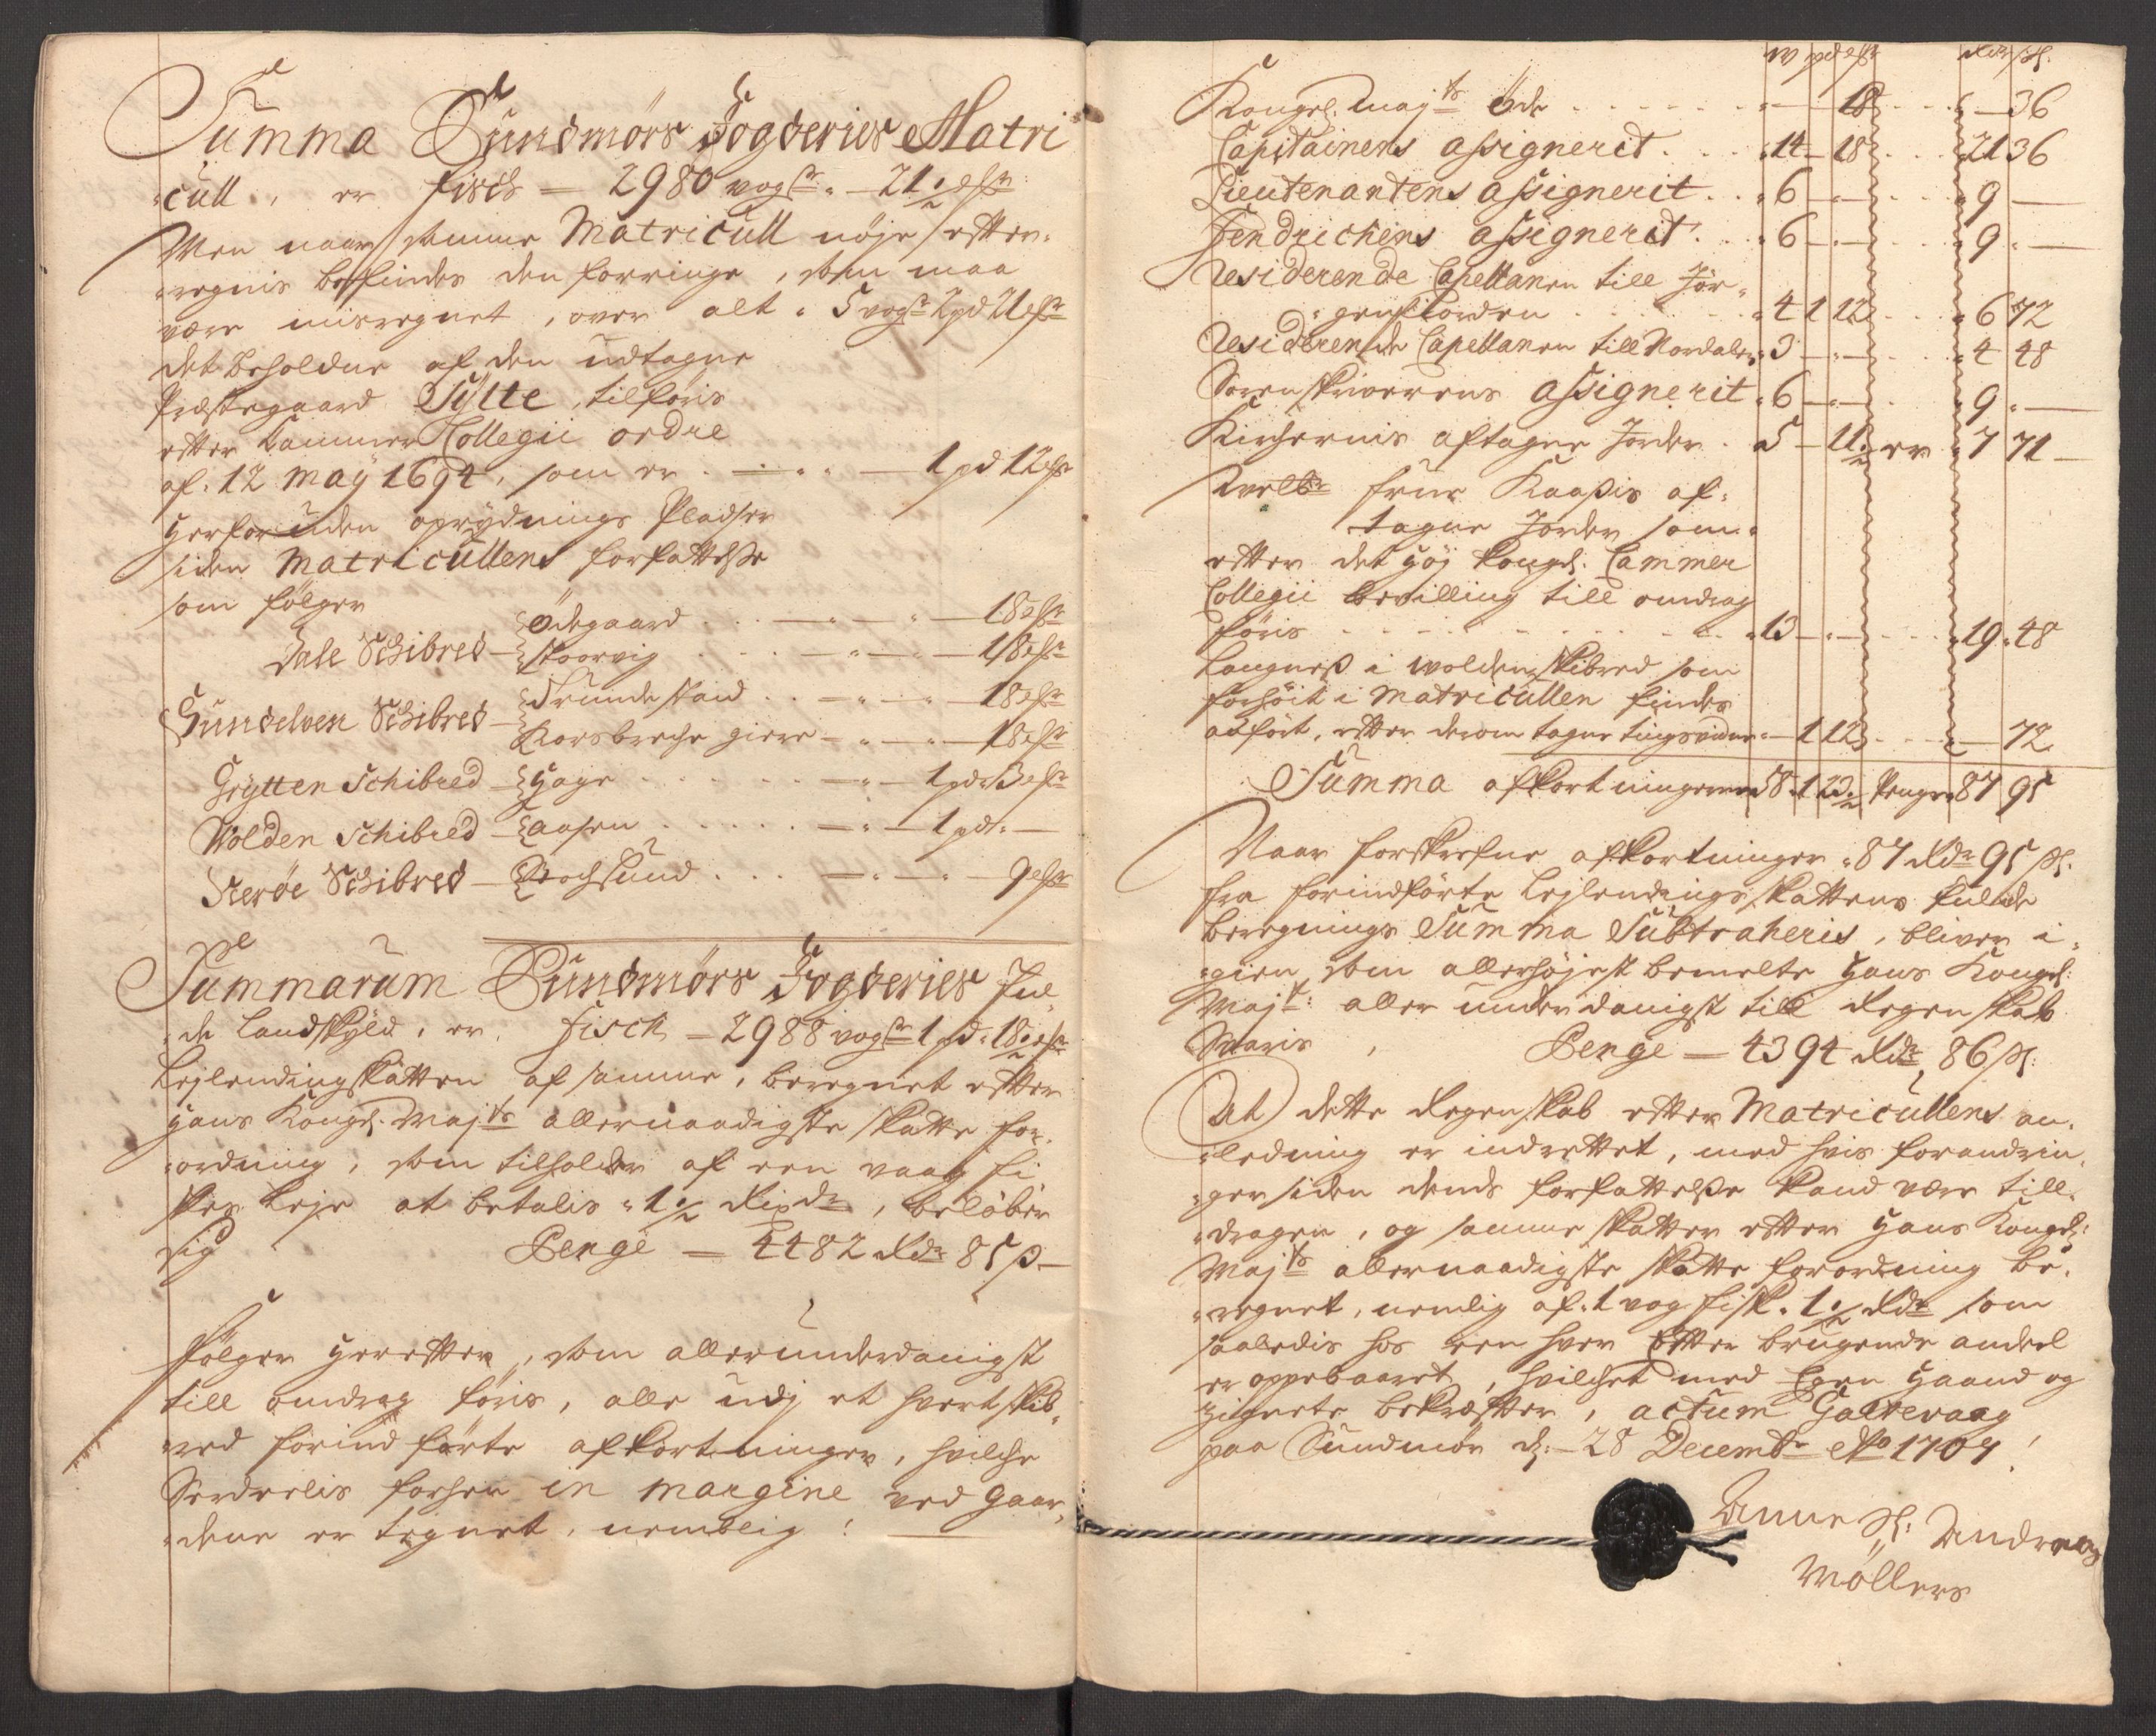 Summa Sundmörs Fogderies Matri
cull, er fisch — 2980 vogr. — 21½ ℔r
Men naar samme Matricull nöje efter-
regnis befindes den forringe, som maa
være misregnet, over alt. 5 vogr 2 pd 21 ℔r
det beholdne af den udtagne
Præstegaard Sylte, tilföris
efter Cammer Collegii ordre
af 12 maÿ 1694, som er . — . — 1 pd 12 ℔r
Herforuden oprÿdnings Pladser
siden Matricullens forfattelse
som fölger
Dale Schibred — Ödegaard . . — . — . — 18 ℔r
Skorvig . . . — . — . — 18 ℔r
Sundelven Schibred — Strunde stand . . — . — . — 18 ℔r
Korsbreche giere — . — . — 18 ℔r
Grÿtten Schibred — Hage . . . — . — 1 pd 3 ℔r
Wolden Schibred — Aasen . . . . — . — 1 pd . —
Heröe Schibred — Bochsund . . . — . — . — 9 ℔r
Summarum Sundmörs Fogderies Ful-
de Landskÿld, er, fisch — 2988 vogr 1 pd. 18½ ℔r
Lejlendingskatten af samme, beregnet efter
Hans Kongl. Majts allernaadigste skatte for-
ordning, som tilholder af een vaag fi
skes Leje at betalis . 1½ Rixdr, belöber
sig Penge — 4482 Rdr 85 ß —
Fölger Herefter, som allerunderdanigst
till omdrag föris, alle udj et hvert skib-
red forind förte afkortninger, hvilche
Serdeelis forhen in margine ved gaar-
dene er tegnet, nemblig!
w pd ℔r Rdr ß.
Kongel. Majts Öde . . . . — — 18 . . . — 36
Capitainens assignerit . . . 14 — 18 . . . 21 36
Lieutenantens assignerit . . . 6 — . — . . . 9 —
Fendrichens assignerit . . . 6 — . — . . . 9 . —
Residerende Capellanen till Jör-
gensfiorden . . . . . . 4 1 12 . . . 6 72
Residerende Capellanen till Nordalen . 3 — . — . . . 4 48
Sorenskriverens assignerit . 6 — . — . . 9 . —
Kirchernis aftagne Jorder . 5 — 11½ er 7 71 —
Velbr frue Kaaßis af-
tagne Jorder som
efter det höj kongl. Cammer
Collegii bevilling till omdrag
föris . . . . . . . . 13 — . — . . . 19 . 48
Langneß i wolden skibred som
forhöit i Matricullen findes
anfört, efter derom tagne tingsvidne — 1 12 . . . — 72
Summa afkortningerne 58 . 1 23½ Penge 87 95
Naar forskrefne afkortninger . 87 Rdr 95 ß.
fra forindförte Lejlendings skattens fulde
beregnings Summa Subtraheris, bliver i-
gien som allerhöjest bemelte Hans Kongl.
Majt: aller underdanigst till Regenskab
Svaris, Penge — 4394 Rdr, 86 ß:
At dette Regenskab efter Matricullens an-
ledning er indrettet, med hvis forandrin-
ger siden dends forfattelse kand være till-
dragen, og samme skatter efter Hans Kongl:
Majts allernaadigste skatte forordning be-
regnet, nemlig af . 1 vog fisk . 1½ Rdr som
saaledis hos een hver efter brugende andeel
er oppebaaret, hvilchet med Egen Haand og
zignete bekræfter, actum Galtevaag
paa Sundmör d: 28 Decembr Ao 1707!
Anne Sl: Andreas
Möllers